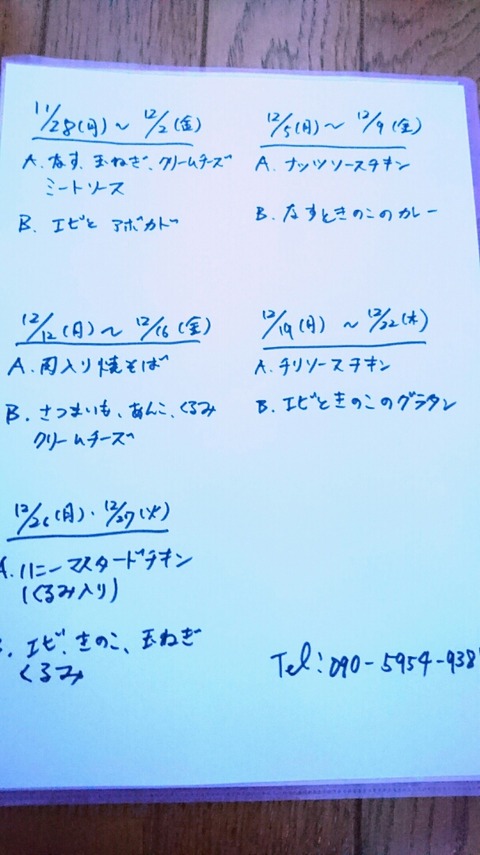 11/28(月)～12/2(金)
A. なす、玉ねぎ、クリームチーズ
ミートソース
B. エビと アボカド
12/5(月)～12/9(金)
A. ナッツソースチキン
B. なすときのこのカレー
12/12(月)～12/16(金)
A. 肉入り焼そば
B. さつまいも、あんこ、くるみ
クリームチーズ
12/19(月)～12/22(木)
A. チリソースチキン
B. エビときのこのグラタン
12/26(月)・12/27(火)
A. ハニーマスタードチキン
(くるみ入り)
. エビ、きのこ、玉ねぎ
くるみ
Tel:090-5954-938